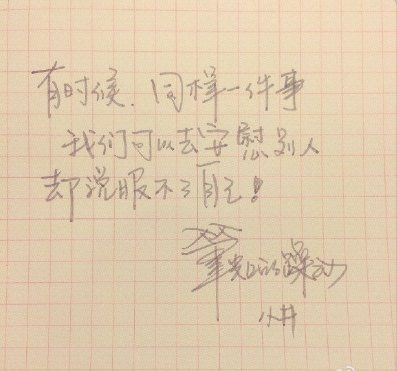 有时候,同样一件事
我们可以去安慰别人
却说服不了自己!
的躁动
小井